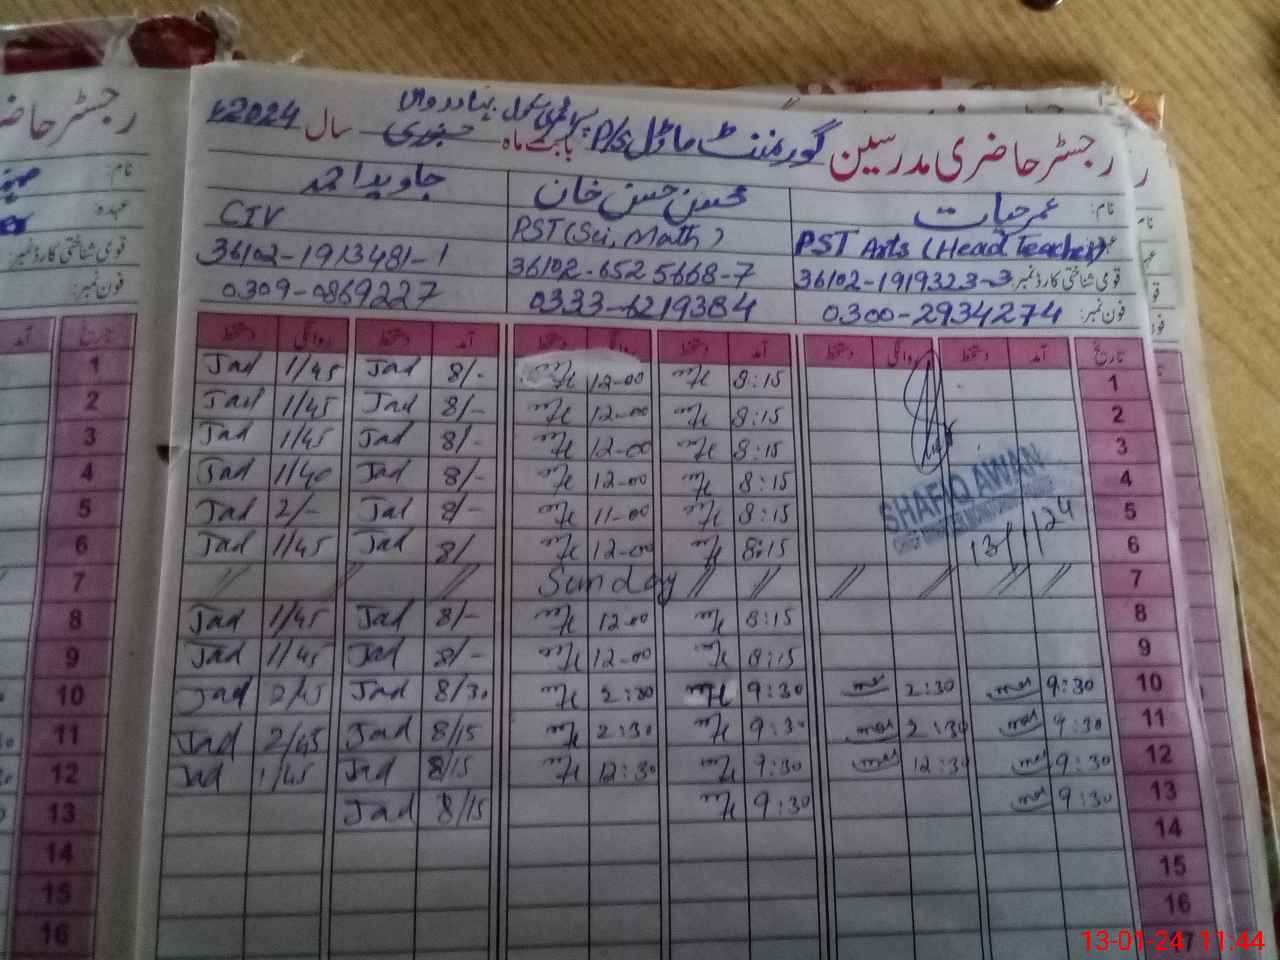 رجسٹر حاضری مدرسین گورنمنٹ ماڈل P/S
بابت ماہ جنوری سال 2024ء
نام: عمر حیات محسن حسن خان جاوید احمد
PST Arts (Head Teacher) PST (Sci, Math) CIV
قومی شناختی کارڈ نمبر 36102-1919323-3 36102-6525668-7 36102-1913481-1
فون نمبر: 0300-2934274 0333-6219384 0309-0869227
تاریخ آمد دستخط روانگی دستخط آمد دستخط روانگی دستخط آمد دستخط روانگی دستخط
1 8:15 12-00 8/- Jad 1/45 Jad
2 8:15 12-00 8/- Jad 1/45 Jad
3 8:15 12-00 8/- Jad 1/45 Jad
4 8:15 12-00 8/- Jad 1/40 Jad
SHAFIQ AWAN
5 8:15 11-00 8/- Jad 2/- Jad
13/1/24
6 8:15 12-00 8/ Jad 1/45 Jad
7 // // // // // Sunday // //
8 8:15 12-00 8/- Jad 1/45 Jad
9 8:15 12-00 8/- Jad 1/45 Jad
10 9:30 2:30 9:30 2:30 8/30 Jad 2/45 Jad
11 9:30 2:30 9:30 2:30 8/15 Jad 2/45 Jad
12 9:30 12:30 9:30 12:30 8/15 Jad 1/45 Jad
13 9:30 9:30 8/15 Jad
14
15
16
رجسٹر حاضر
نام:
عہدہ:
قومی شناختی کارڈ نمبر:
فون نمبر:
تاریخ آمد
1
2
3
4
5
6
7
8
9
10
11
12
13
14
15
16
13-01-24 11:44